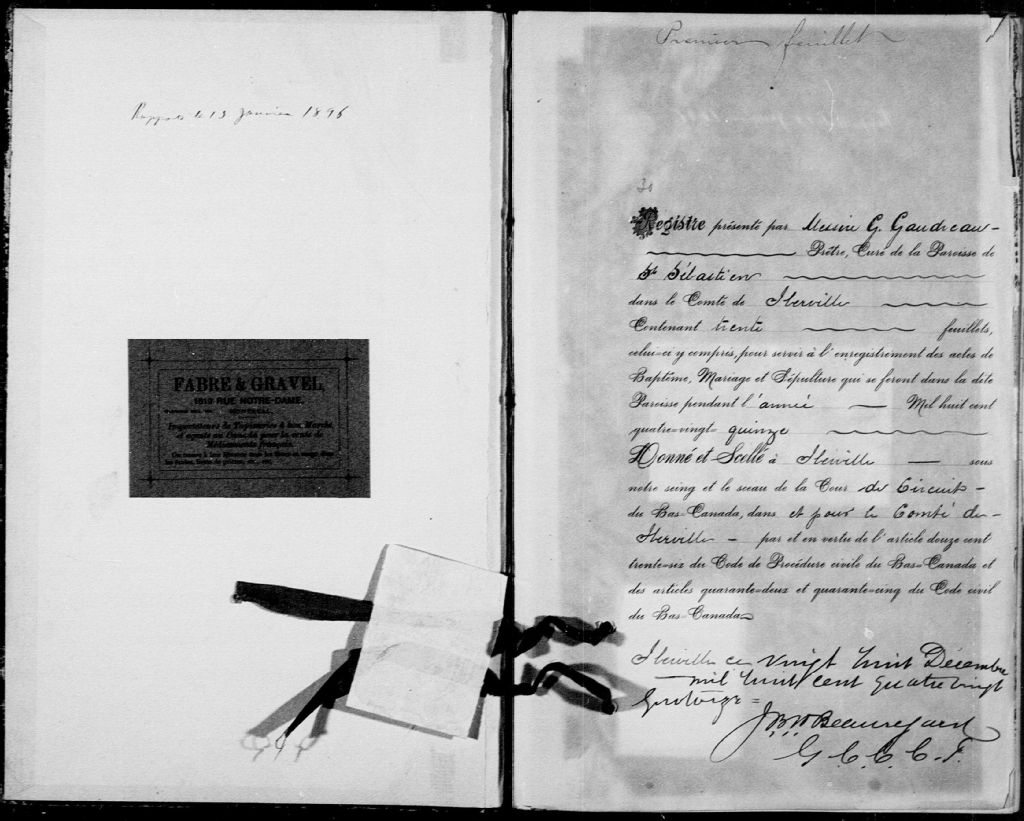 Rapporté le 13 Janvier 1896
FABRE & GRAVEL,
1619 RUE NOTRE-DAME,
MONTREAL.
Importateurs de Tapisseries à bon Marché
et agents au Canada pour la vente de
Médicaments français.
Premier feuillet
30
Registre présenté par Messire G. Gaudreau
Prêtre, Curé de la Paroisse de
St Sébastien
dans le Comté de Iberville
Contenant trente feuillets,
celui-ci y compris, pour servir à l'enregistrement des actes de
Baptême, Mariage et Sépulture qui se feront dans la dite
Paroisse pendant l'année — Mil huit cent
quatre-vingt- quinze
Donné et Scellé à Iberville — sous
notre seing et le sceau de la Cour de Circuit -
du Bas-Canada, dans et pour le Comté de -
Iberville - par et en vertu de l'article douze cent
trente-six du Code de Procédure civile du Bas-Canada et
des articles quarante-deux et quarante-cinq du Code civil
du Bas-Canada
Iberville ce vingt huit Décembre
mil huit cent quatre vingt
quatorze =
Beauregard
G. C. C. C. I.